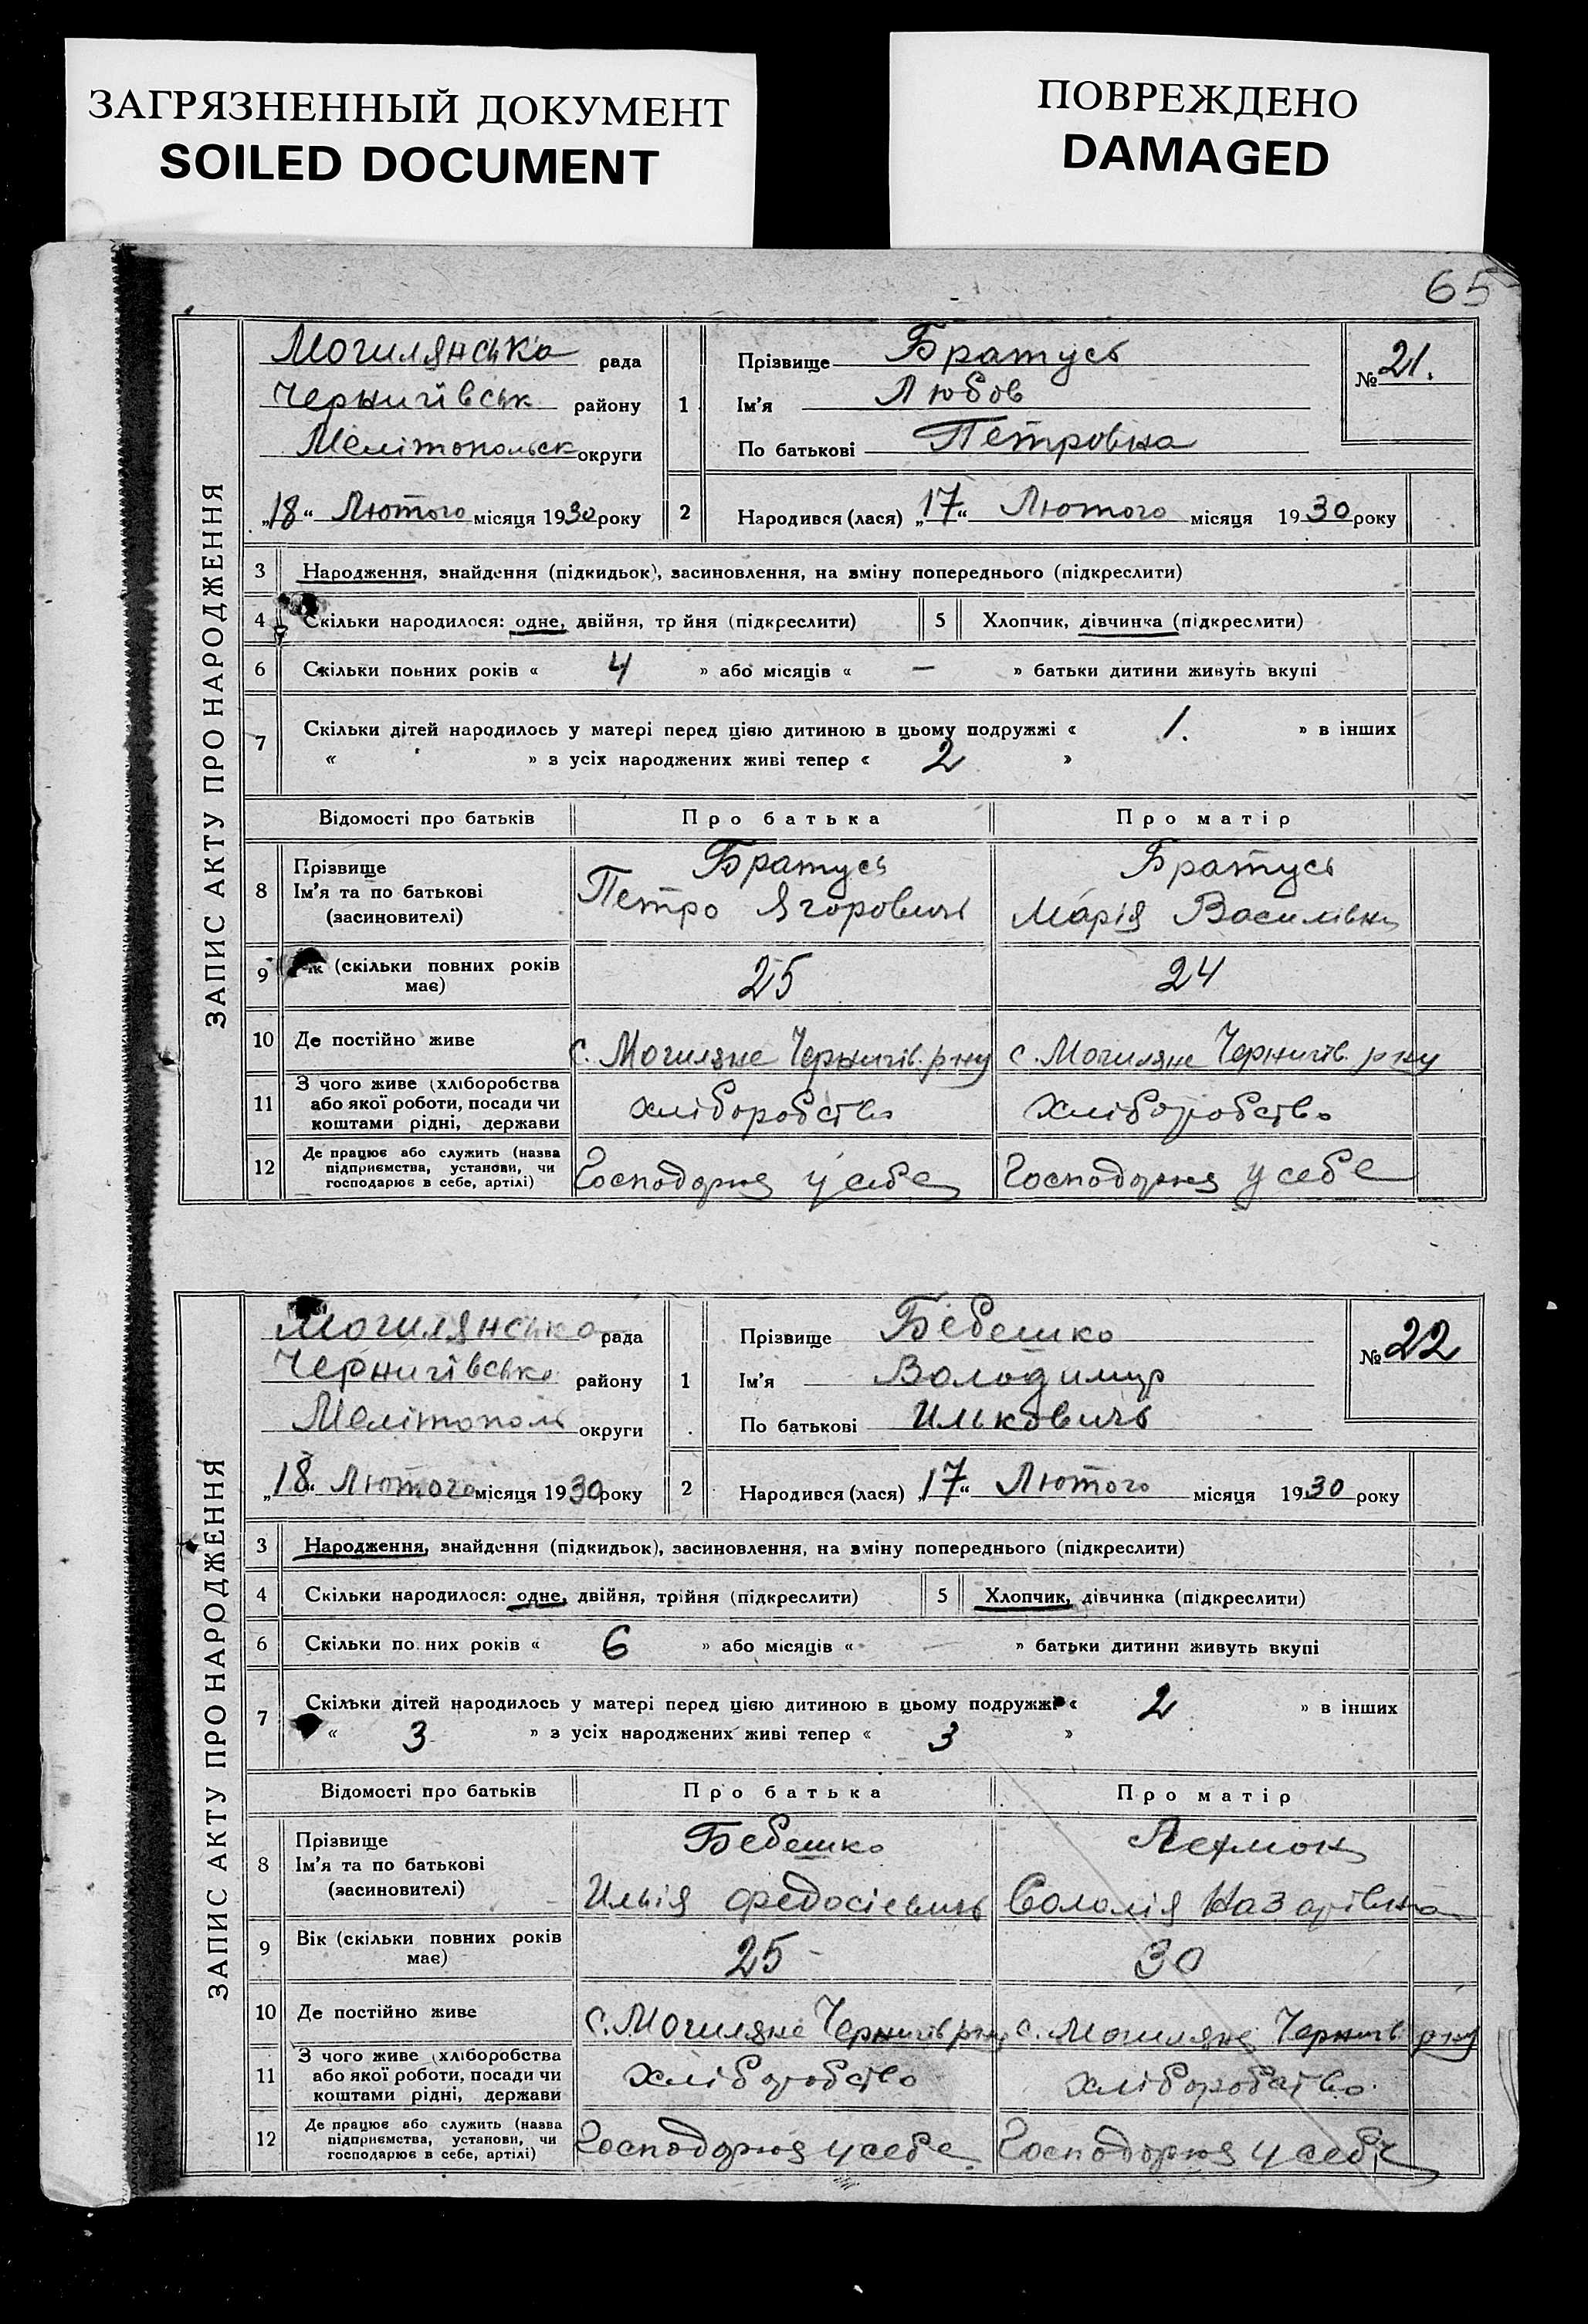 ЗАГРЯЗНЕННЫЙ ДОКУМЕНТ
SOILED DOCUMENT
ПОВРЕЖДЕНО
DAMAGED
65
ЗАПИС АКТУ ПРО НАРОДЖЕННЯ
Могилянська рада
Чернигівськ району
Мелітопольск округи
„18“ Лютого місяця 1930 року
1 Прізвище Братусь
Ім'я Любов
По батькові Петровна
№ 21.
2 Народився (лася) „17“ Лютого місяця 1930 року
3 Народження, знайдення (підкидьок), засиновлення, на зміну попереднього (підкреслити)
4 Скільки народилося: одне, двійня, тр йня (підкреслити) 5 Хлопчик, дівчинка (підкреслити)
6 Скільки повних років « 4 » або місяців « — » батьки дитини живуть вкупі
7 Скільки дітей народилось у матері перед цією дитиною в цьому подружжі « 1. » в інших
« » з усіх народжених живі тепер « 2 »
Відомості про батьків Про батька Про матір
8 Прізвище Братусь Братусь
Ім'я та по батькові Петро Ягоровичь Марія Василівна
(засиновителі)
9 ік (скільки повних років 25 24
має)
10 Де постійно живе с. Могиляне Чернигів. рну с. Могиляне Чернигів. рну
11 З чого живе (хліборобства хліборобство хліборобство
або якої роботи, посади чи
коштами рідні, держави
12 Де працює або служить (назва Господорює у себе Господорює у себе
підприємства, установи, чи
господарює в себе, артілі)
ЗАПИС АКТУ ПРО НАРОДЖЕННЯ
Могилянсько рада
Чернигівсько району
Мелітополь округи
„18“ Лютого місяця 1930 року
1 Прізвище Бебешко
Ім'я Володимир
По батькові Ильковичь
№ 22
2 Народився (лася) „17“ Лютого місяця 1930 року
3 Народження, знайдення (підкидьок), засиновлення, на зміну попереднього (підкреслити)
4 Скільки народилося: одне, двійня, трійня (підкреслити) 5 Хлопчик, дівчинка (підкреслити)
6 Скільки по них років « 6 » або місяців « — » батьки дитини живуть вкупі
7 Скільки дітей народилось у матері перед цією дитиною в цьому подружжі « 2 » в інших
« 3 » з усіх народжених живі тепер « 3 »
Відомості про батьків Про батька Про матір
8 Прізвище Бебешко
Ім'я та по батькові Илья Федосіевичь Соломія Назарівна
(засиновителі)
9 Вік (скільки повних років 25 30
має)
10 Де постійно живе с. Могиляне Чернигів рну с. Могиляне Чернигів. рну
11 З чого живе (хліборобства хліборобство хліборобство.
або якої роботи, посади чи
коштами рідні, держави
12 Де працює або служить (назва Господорює у себе Господорює у себе
підприємства, установи, чи
господарює в себе, артілі)